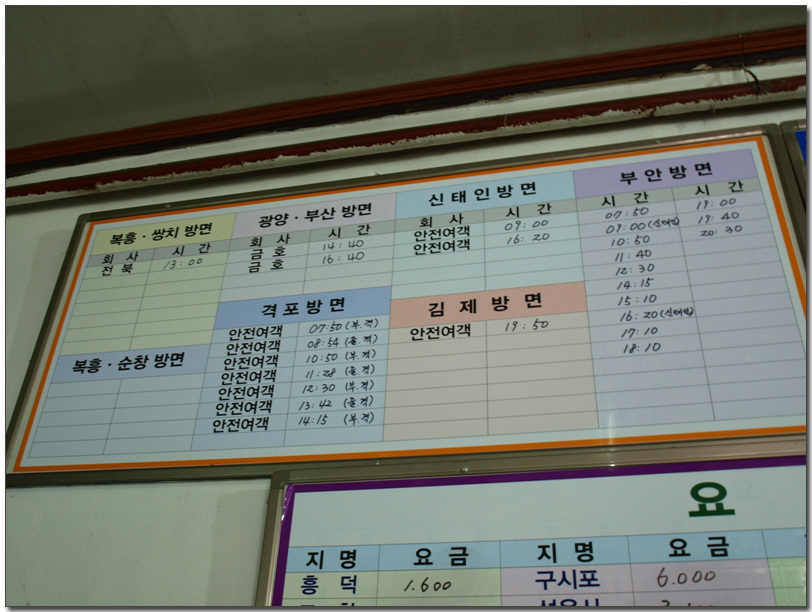 복흥 · 쌍치 방면
회 사 시 간
전 북 13:00
광양 · 부산 방면
회 사 시 간
금 호 14:40
금 호 16:40
신 태 인 방 면
회 사 시 간
안전여객 09:00
안전여객 16:20
부 안 방 면
시 간 시 간
07:50 19:00
09:00(신태인) 19:40
10:50 20:30
11:40
12:30
14:15
15:10
16:20(신태인)
17:10
18:10
복흥 · 순창 방면
격 포 방 면
안전여객 07:50 (부.격)
안전여객 08:54 (줄.격)
안전여객 10:50 (부.격)
안전여객 11:28 (줄.격)
안전여객 12:30 (부.격)
안전여객 13:42 (줄.격)
안전여객 14:15 (부.격)
김 제 방 면
안전여객 19:50
요
지 명 요 금 지 명 요 금
흥 덕 1.600 구시포 6.000